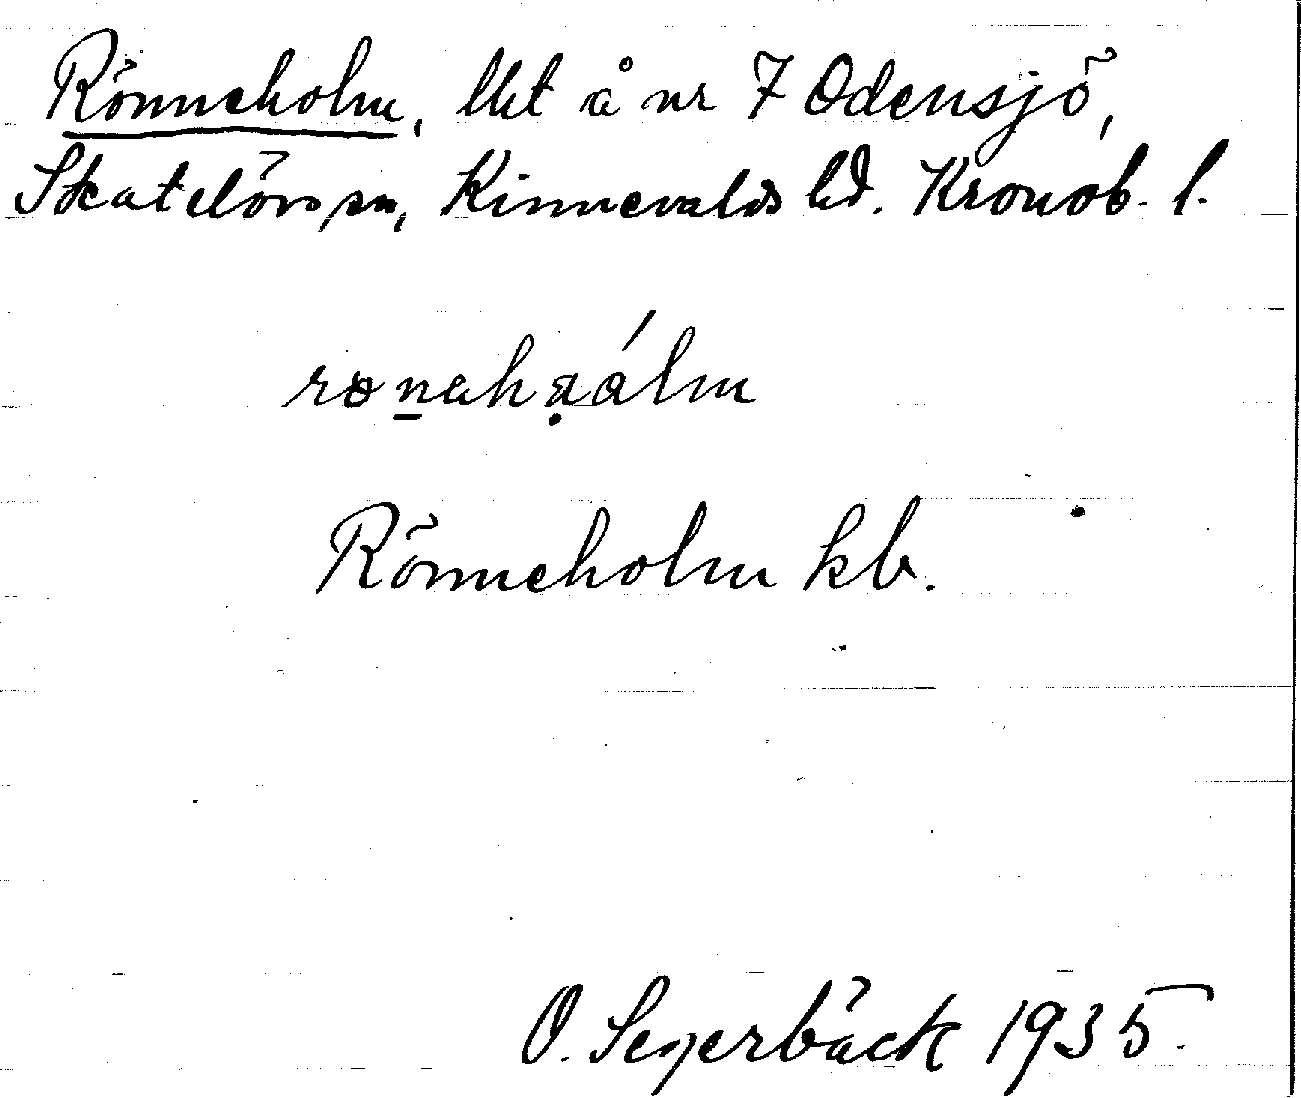 Rönneholm, lht å nr 7 Odensjö,
Skatelövs sn, Kinnevalds hd. Kronob. l.
Rönneholm kb.
O. Segerbäck 1935.